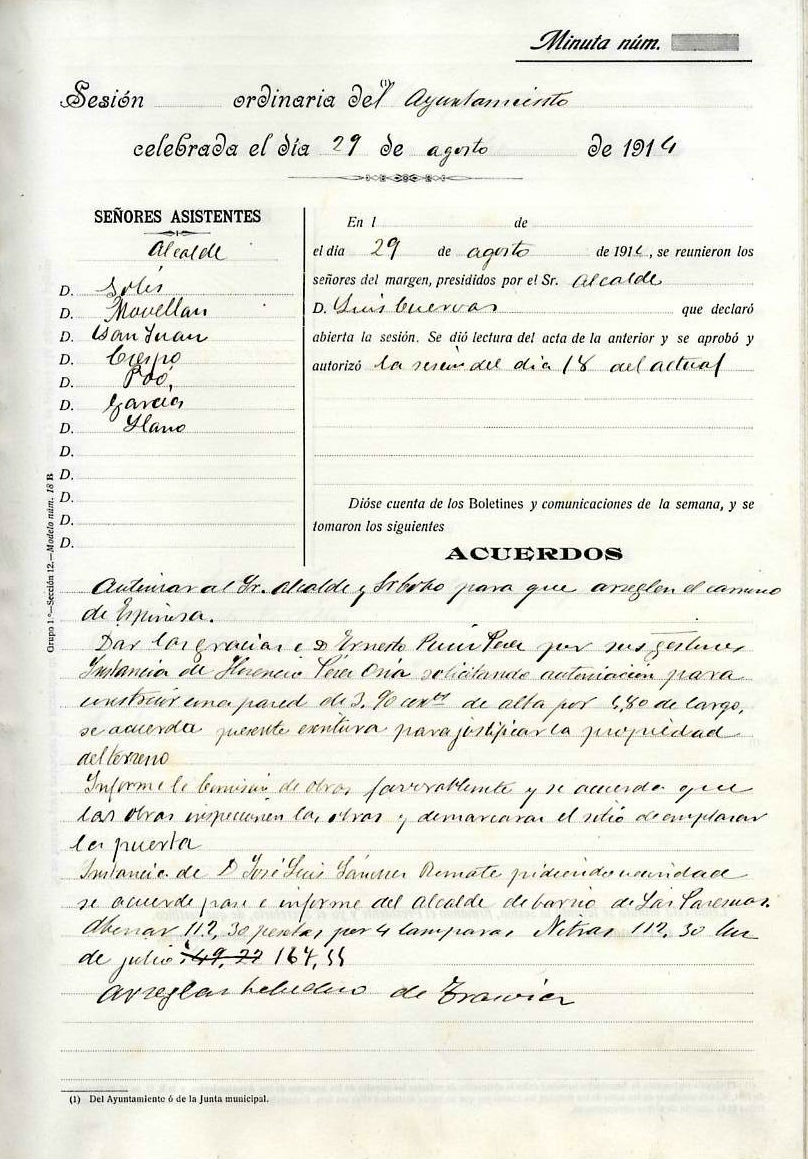 Minuta núm.
Sesión ordinaria del (1) Ayuntamiento
celebrada el día 29 de agosto de 1914
SEÑORES ASISTENTES
Alcalde
D. Solís
D. Movellan
D. San Juan
D. Crespo
D. Poó,
D. García
D. Llano
D.
D.
D.
D.
D.
En l de
el día 29 de agosto de 1914, se reunieron los
señores del margen, presididos por el Sr. Alcalde
D. Luis Cuevas que declaró
abierta la sesión. Se dió lectura del acta de la anterior y se aprobó y
autorizó la sesión del dia 18 del actual
Dióse cuenta de los Boletines y comunicaciones de la semana, y se
tomaron los siguientes
ACUERDOS
Autorizar al Sr. Alcalde y Sr para que arreglen el camino
de Espinosa.
Dar las gracias a D Ernesto por sus gestiones
Instancia de Florencio Pérez Oria solicitando autorización para
construir una pared de 3,90 cents de alta por 6,80 de largo,
se acuerda presente escritura para justificar la propiedad
del terreno
Informe la Comisión de obras favorablemente y se acuerda que
las obras inspeccionen las obras y demarcaran el sitio de emplazar
la puerta
Instancia de D José Luis Sánchez pidiendo vecindad
se acuerde pase a informe del Alcalde de barrio de Las
Abonar 112,30 pesetas por 4 lamparas Nitras 112,30 luz
de julio 149,22 164,55
Arreglar bebedero de
Grupo 1.º—Sección 12.—Modelo núm. 18 B
(1) Del Ayuntamiento ó de la Junta municipal.